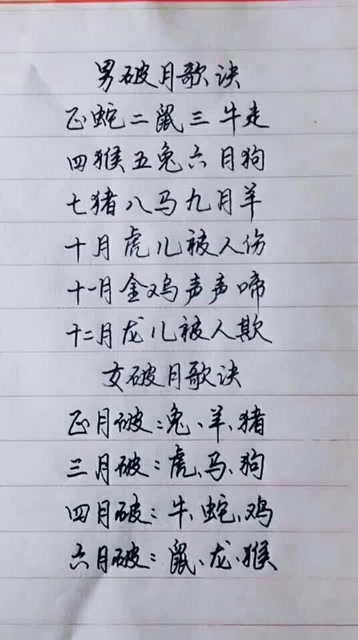 男破月歌诀
正蛇二鼠三牛走
四猴五兔六月狗
七猪八马九月羊
十月虎儿被人伤
十一月金鸡声声啼
十二月龙儿被人欺
女破月歌诀
正月破:兔、羊、猪
三月破:虎、马、狗
四月破:牛、蛇、鸡
六月破:鼠、龙、猴